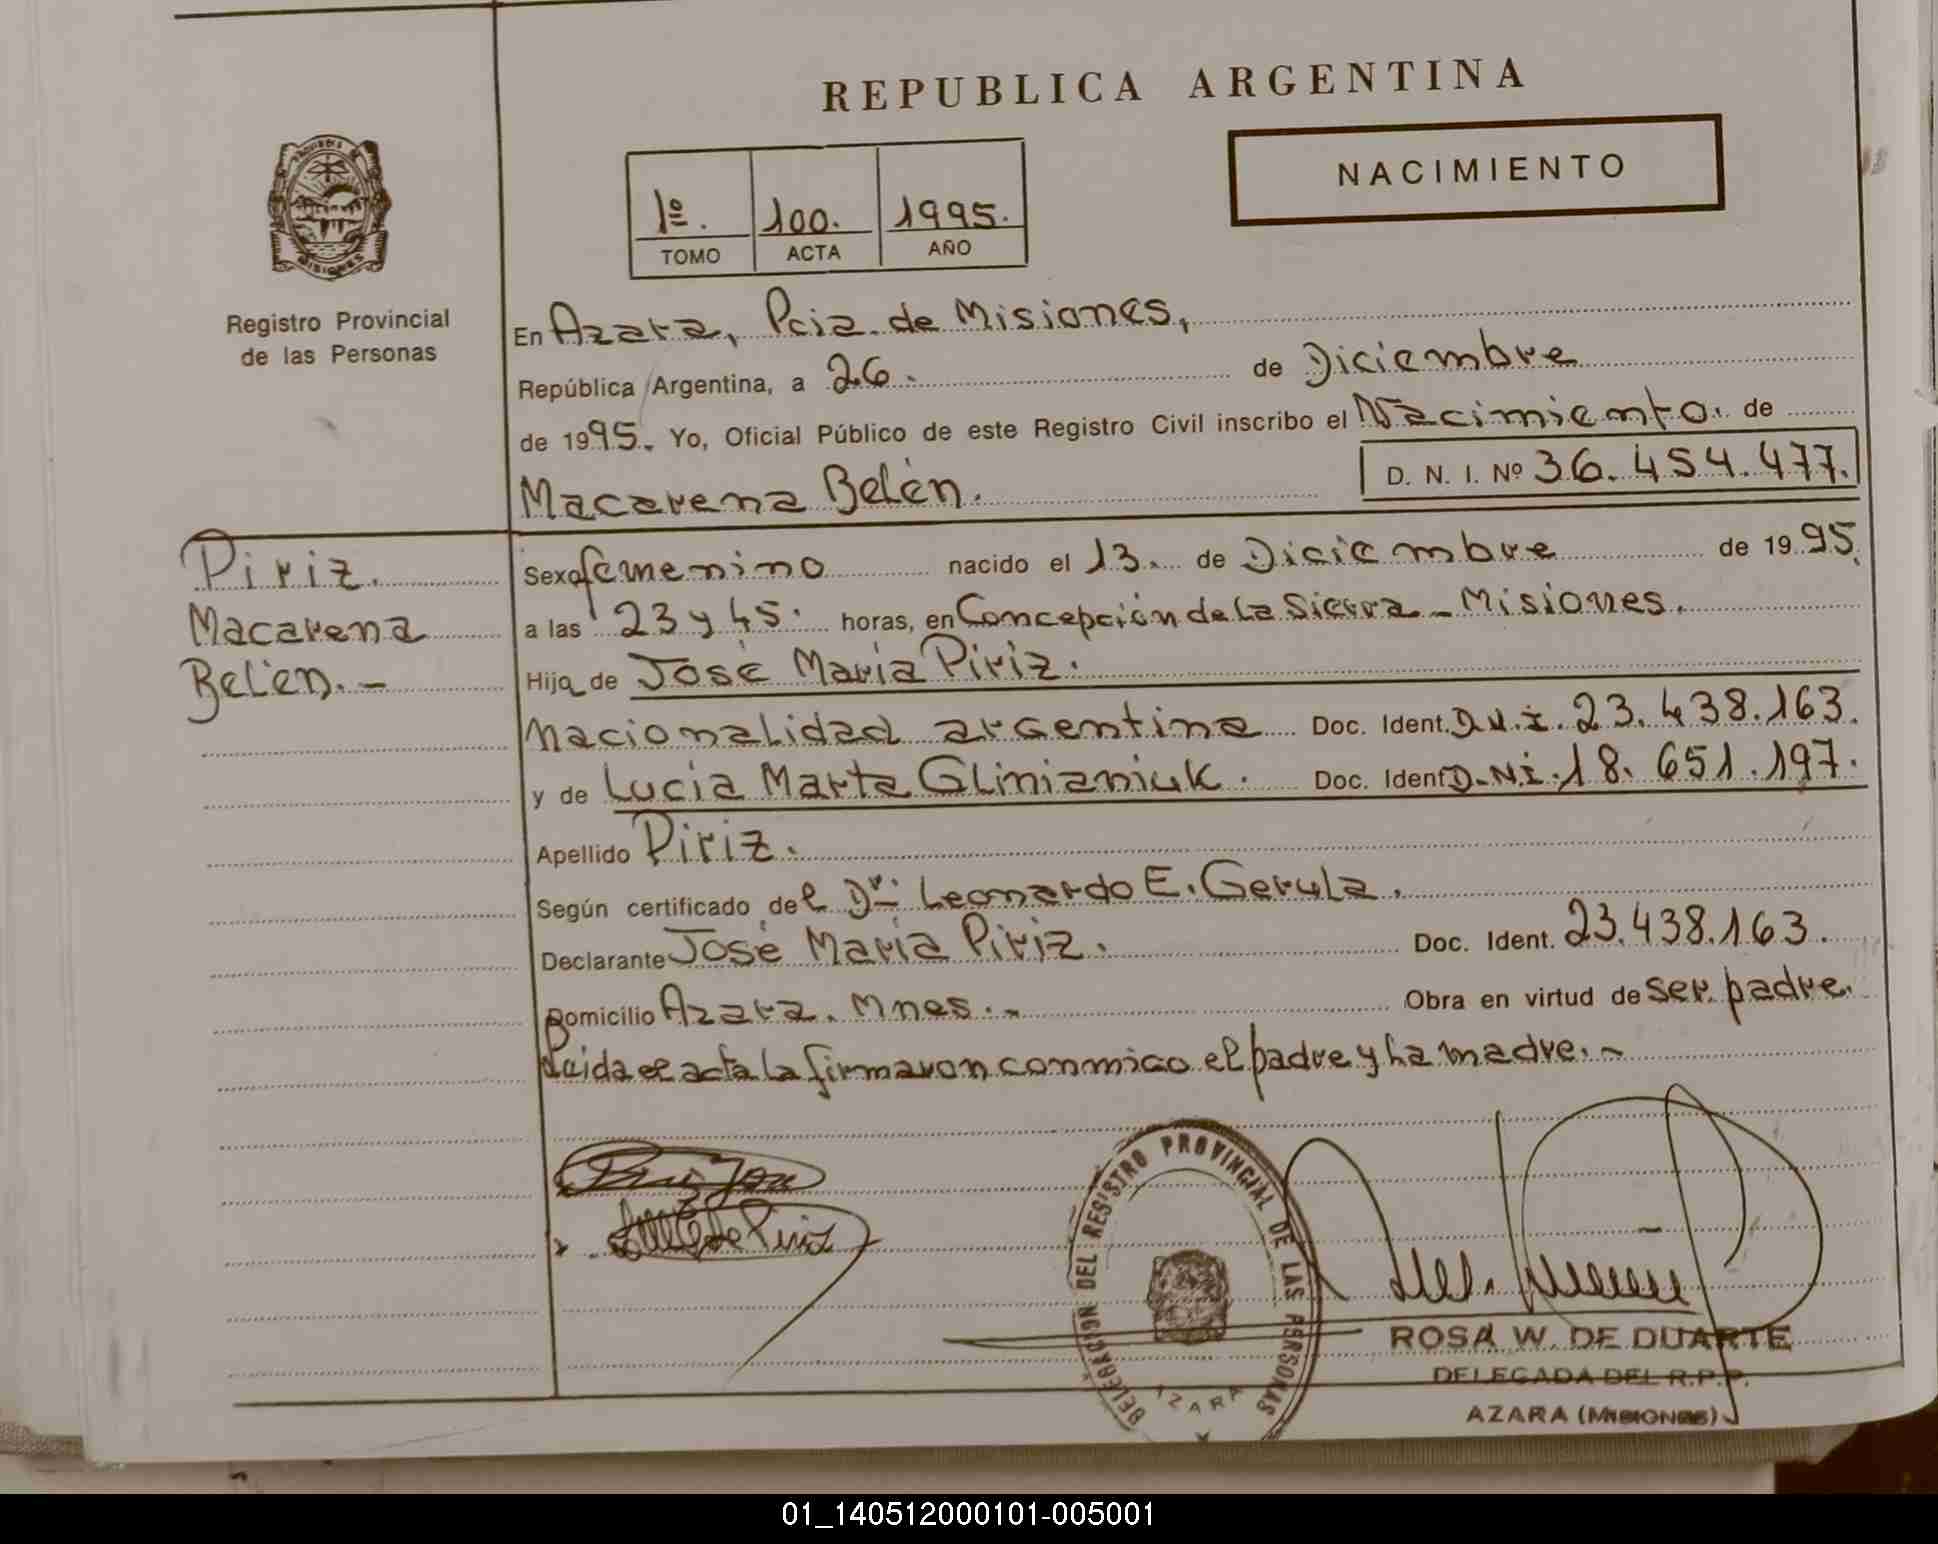 REPUBLICA ARGENTINA
NACIMIENTO
1º. 100. 1995.
TOMO ACTA AÑO
MISIONES
Registro Provincial
de las Personas
En Azara, Pcia. de Misiones,
República Argentina, a 26. de Diciembre
de 1995. Yo, Oficial Público de este Registro Civil inscribo el Nacimiento. de
Macarena Belén. D. N. I. Nº 36.454.477.
Piriz.
Macarena
Belén. -
Sexo femenino nacido el 13. de Diciembre de 1995.
a las 23 y 45. horas, en Concepción de La Sierra - Misiones.
Hija de José María Piriz.
Nacionalidad argentina Doc. Ident. D.N.I. 23.438.163.
y de Lucia Marta Glinianiuk. Doc. Ident D.N.I. 18.651.197.
Apellido Piriz.
Según certificado del Dr. Leonardo E. Gerula.
Declarante José María Piriz. Doc. Ident. 23.438.163.
Domicilio Azara. Mnes. - Obra en virtud de ser padre.
Leida el acta la firmaron conmigo el padre y la madre. -
DELEGACION DEL REGISTRO PROVINCIAL DE LAS PERSONAS
AZARA
ROSA W. DE DUARTE
DELEGADA DEL R.P.P.
AZARA (MISIONES)
01_140512000101-005001